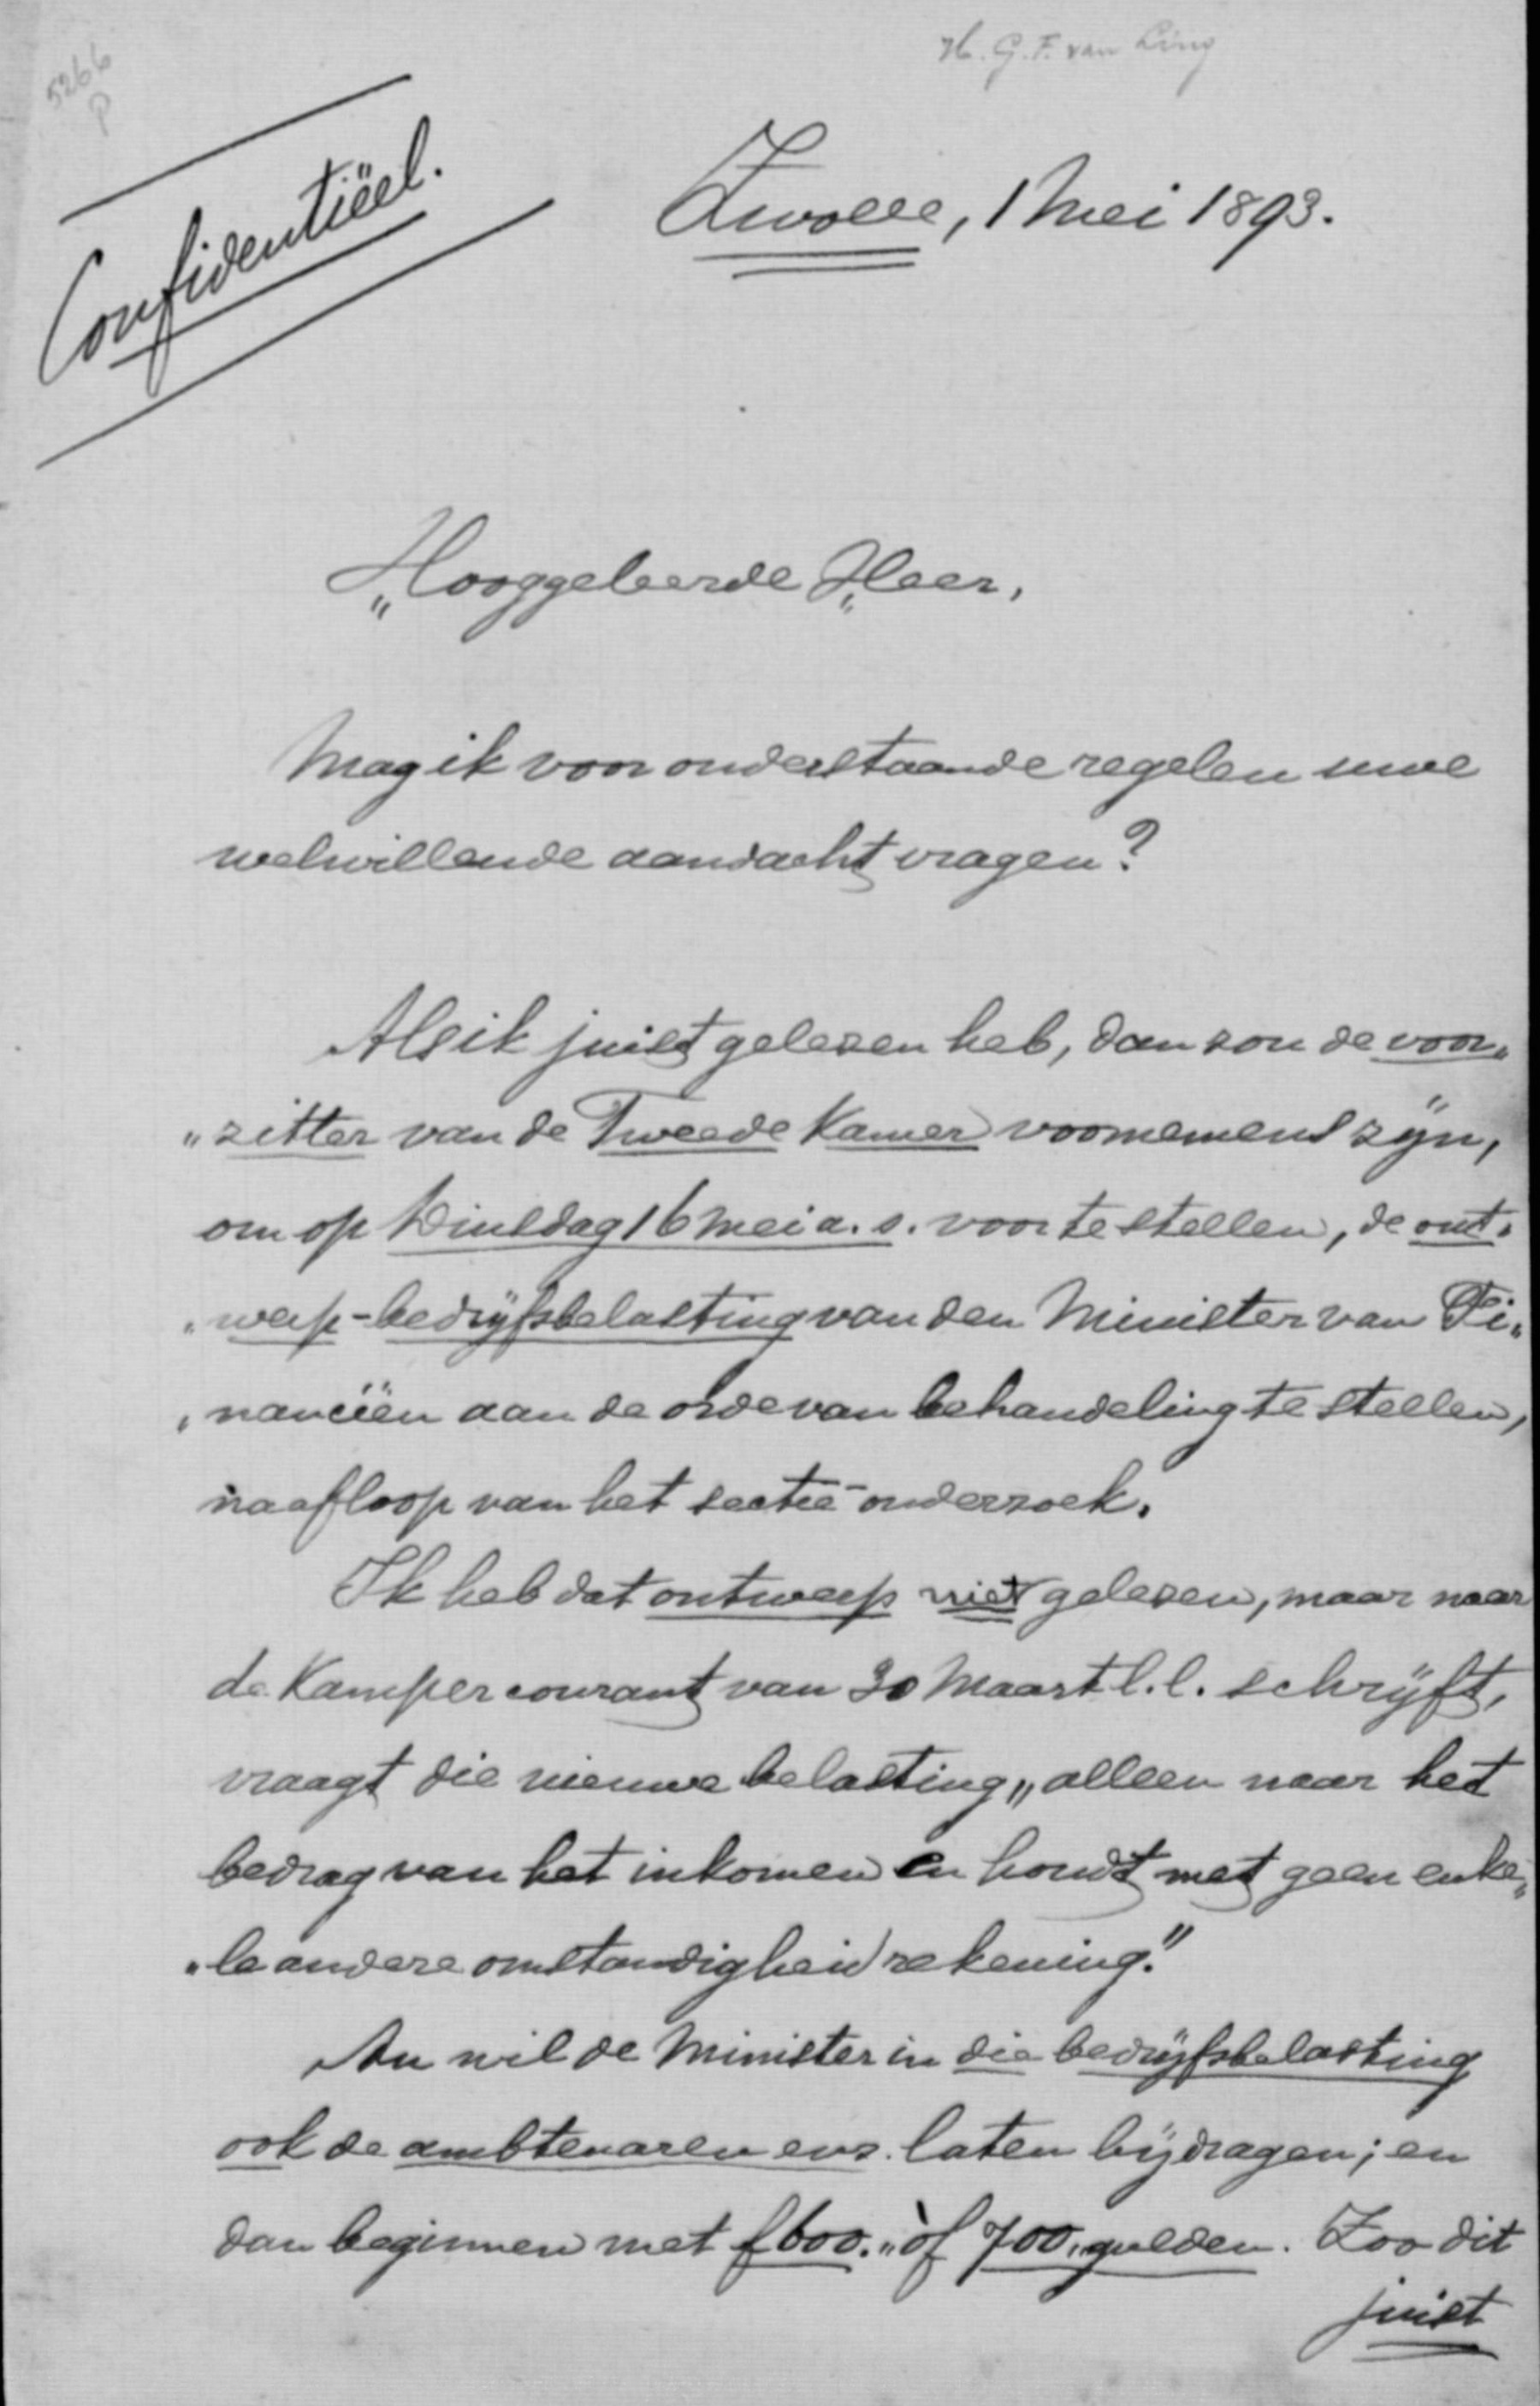 H. G. F. van Ling
5266
P
Confidentiëel.
Zwolle, 1 Mei 1893.
„Hooggeleerde Heer,
Mag ik voor onderstaande regelen uwe
welwillende aandacht vragen?
Als ik juist gelezen heb, dan zou de voor„
„zitter van de Tweede Kamer voornemens zijn,
om op Dinsdag 16 Mei a. s. voor te stellen, de ont„
„werp-bedrijfsbelasting van den Minister van Fi„
„nanciën aan de orde van behandeling te stellen,
na afloop van het sectie-onderzoek.
Ik heb dat ontwerp niet gelezen, maar naar
de Kamper courant van 30 Maart l.l. schrijft,
vraagt die nieuwe belasting „alleen naar het
bedrag van het inkomen en houdt met geen enke„
„le andere omstandigheid rekening."
Nu wil de Minister in die bedrijfsbelasting
ook de ambtenaren enz. laten bijdragen; en
dan beginnen met f600.„ òf 700„ gulden. Zoo dit
juist